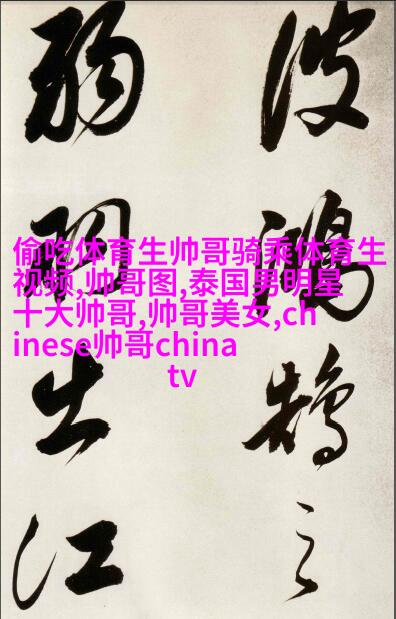 鴻鵠之
弱羽出江
偷吃体育生帅哥骑乘体育生
视频,帅哥图,泰国男明星
十大帅哥,帅哥美女,ch
inese帅哥china
tv